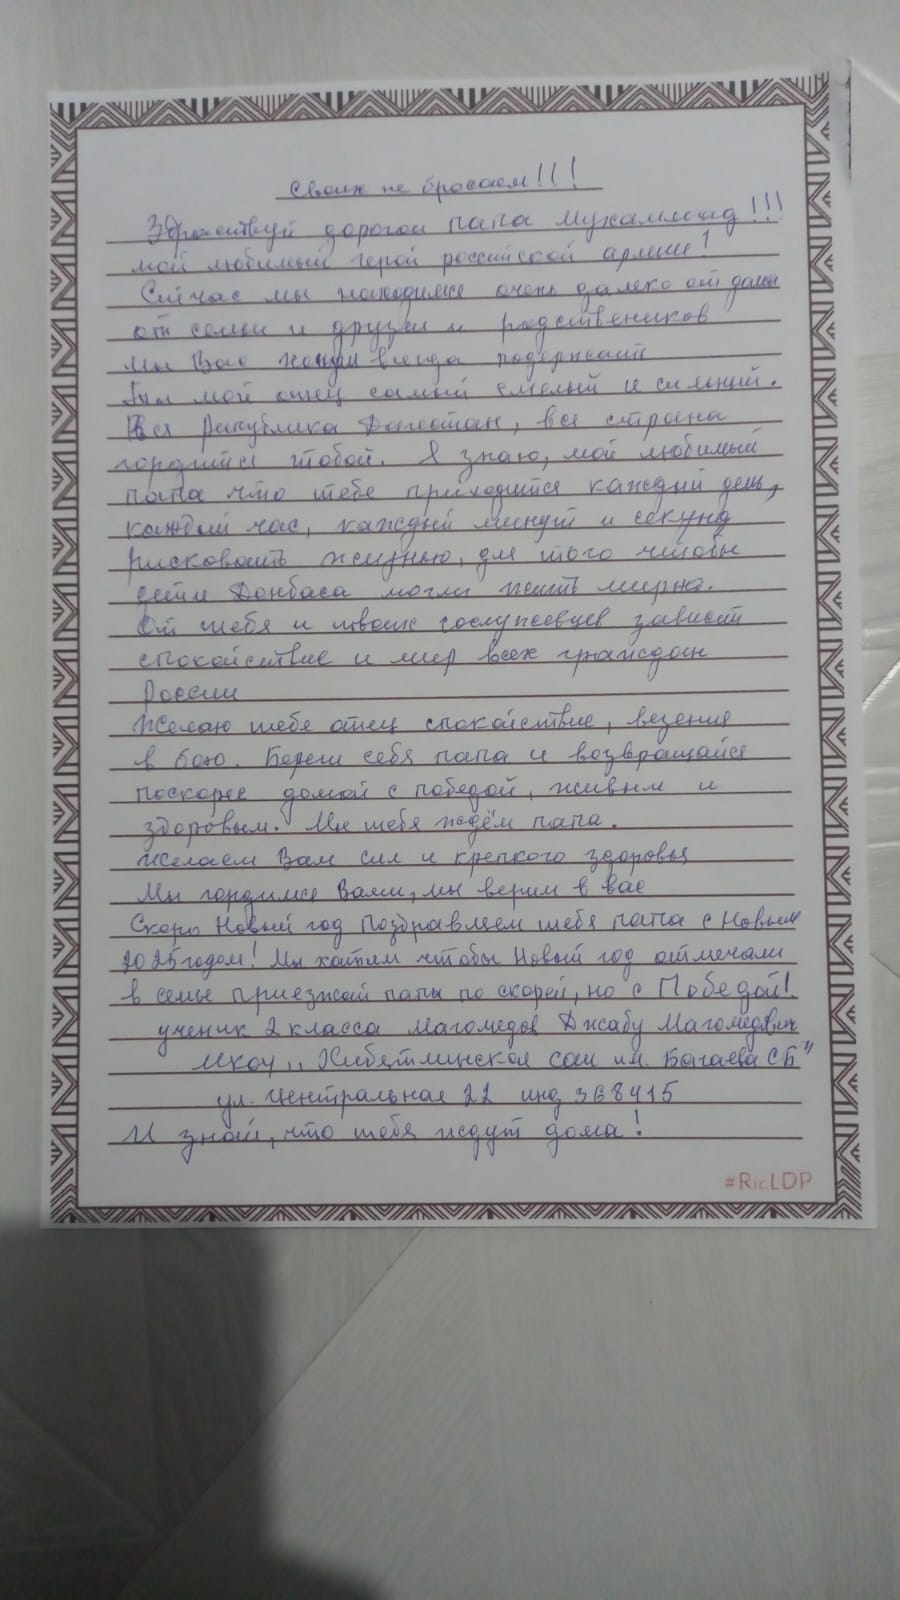 Своих не бросаем!!!
Здравствуй дорогой папа Мухаммад!!!
мой любимый герой российской армии!
Сейчас мы находимся очень далеко от дома
от семьи и друзей и родствеников
мы Вас всегда подержать
Ты мой отец самый смелый и сильный.
Вся Республика Дагестан, вся страна
гордится тобой. Я знаю, мой любимый
папа что тебе приходится каждый день,
каждый час, каждый минут и секунд
рисковать жизнью, для того чтобы
дети Донбаса могли жить мирно.
От тебя и твоих сослуживцев зависит
спокойствие и мир всех граждан
России
Желаю тебе отец спокойствие, везения
в бою. Береги себя папа и возвращайся
поскорее домой с победой, живым и
здоровым. Мы тебя ждём папа.
Желаем Вам сил и крепкого здоровья
Мы гордимся Вами, мы верим в вас
Скоро Новый год Поздравляем тебя папа с Новым
2025 годом! Мы хотим чтобы Новый год отмечали
в семье приезжай папа по скорей, но с Победой!
ученик 2 класса Магомедов Джабу Магомедович
МКОУ ,, Хибятлинская сош им. Багаева С Б"
ул. Центральная 22 инд 368415
И знай, что тебя ждут дома!
#RicLDP